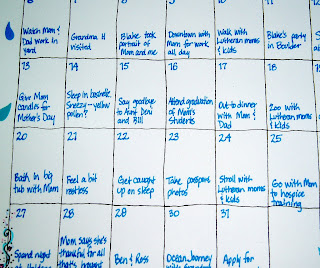 Watch Mom &
Dad work in
yard
Grandma H
visited
Blake took
portrait of
Mom and me
Downtown with
Mom for work
all day
Walk with
Lutheran moms
& kids
Blake's party
in Boulder
13
14
15
16
17
18
Give Mom
candles for
Mother's Day
Sleep in bassinette
Sneezy - yellow
pollen?
Say goodbye
to Aunt Deni
and Bill
Attend graduation
of Matt's
students
Out to dinner
with Mom &
Dad
Zoo with
Lutheran moms
& kids
20
21
22
23
24
25
Bath in big
tub with Mom
Feel a bit
restless
Get caught
up on sleep
Take passport
photos
Stroll with
Lutheran moms
& kids
Go with Mom
to hospice
training
27
28
29
30
31
Spend night
Mom says she's
thankful for all
that's brought
Ben & Ross
Ocean Journey
Apply for